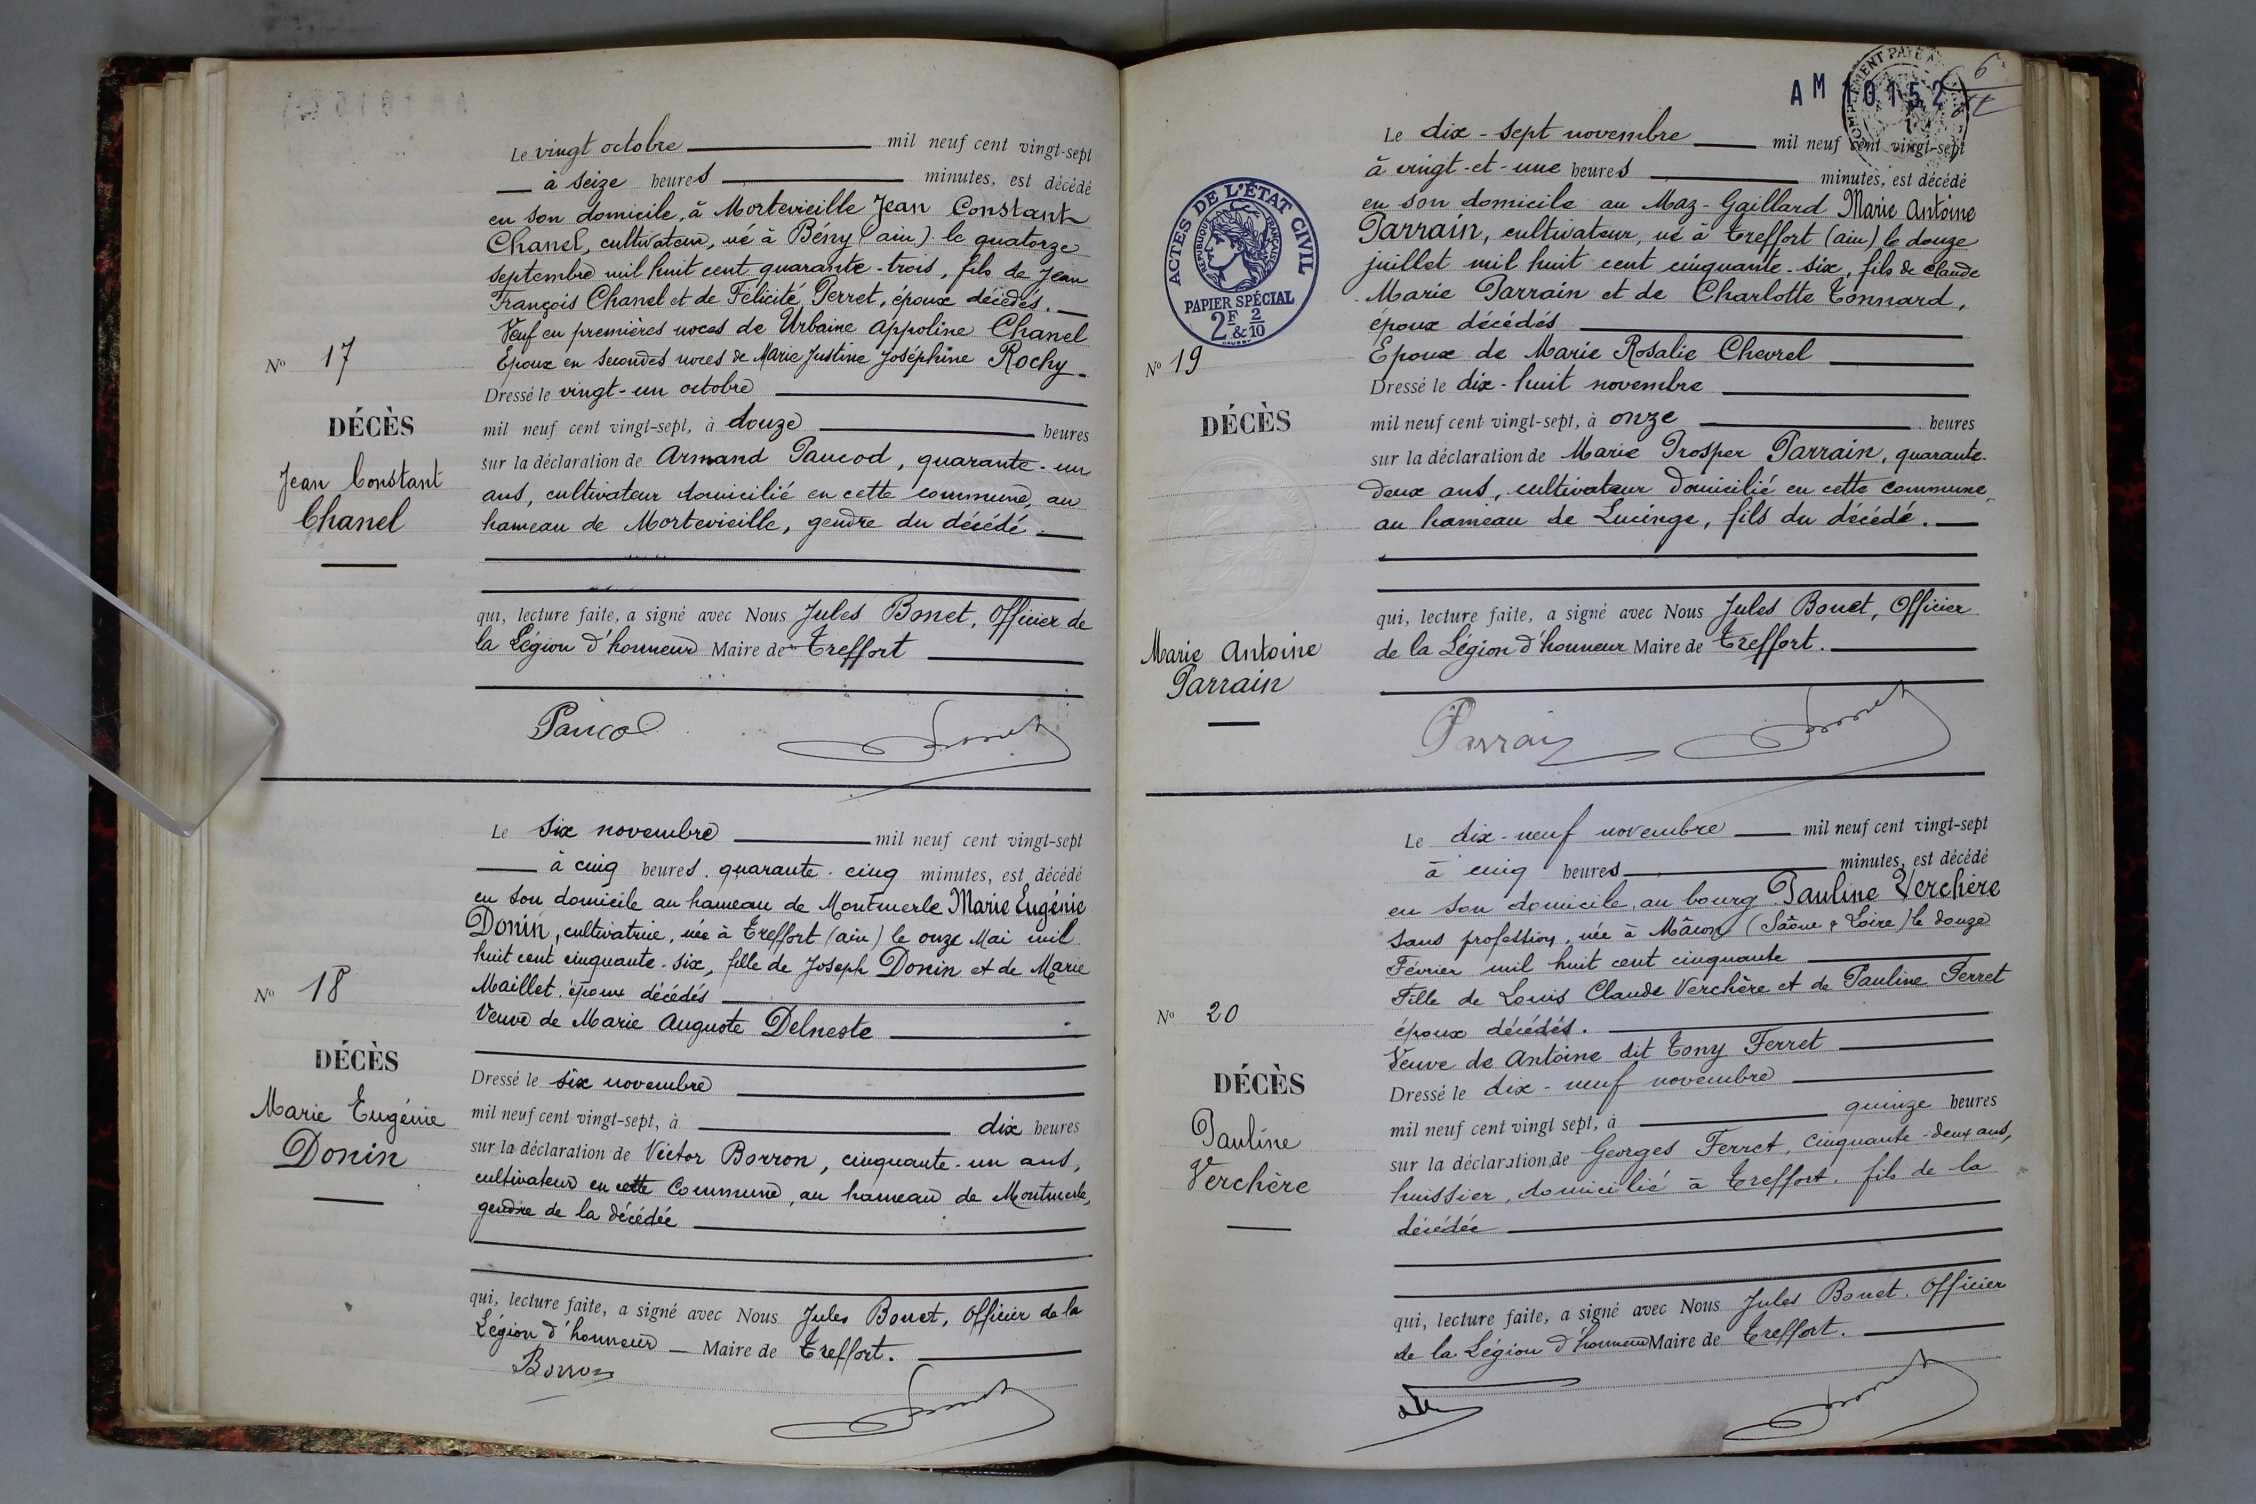 Le vingt octobre mil neuf cent vingt-sept
à seize heures minutes, est décédé
en son domicile, à Mortevieille Jean Constant
Chanel, cultivateur, né à Bény (ain) le quatorze
septembre mil huit cent quarante-trois, fils de Jean
François Chanel et de Félicité Perret, époux décédés.
Veuf en premières noces de Urbaine Appoline Chanel
Epoux en secondes noces de Marie Justine Joséphine Rochy
Nº 17
Dressé le vingt-un octobre
DÉCÈS
mil neuf cent vingt-sept, à douze heures
sur la déclaration de Armand Paucod, quarante-un
Jean Constant
ans, cultivateur domicilié en cette commune, au
Chanel
hameau de Mortevieille, gendre du décédé.
qui, lecture faite, a signé avec Nous Jules Bonet, Officier de
la Légion d'honneur Maire de Treffort
Paucod
Le six novembre mil neuf cent vingt-sept
à cinq heures quarante-cinq minutes, est décédé
en son domicile au hameau de Montmerle Marie Eugénie
Donin, cultivatrice, née à Treffort (ain) le onze Mai mil
huit cent cinquante-six, fille de Joseph Donin et de Marie
Maillet, époux décédés
Nº 18
Veuve de Marie Auguste Delneste
DÉCÈS
Dressé le six novembre
Marie Eugénie
mil neuf cent vingt-sept, à dix heures
Donin
sur la déclaration de Victor Borron, cinquante-un ans,
cultivateur en cette Commune, au hameau de Montmerle,
gendre de la décédée
qui, lecture faite, a signé avec Nous Jules Bonet, Officier de la
Légion d'honneur Maire de Treffort.
Borron
AM 10152
6
Le dix-sept novembre mil neuf cent vingt-sept
à vingt-et-une heures minutes, est décédé
en son domicile au Maz-Gaillard Marie Antoine
Parrain, cultivateur, né à Treffort (ain) le douze
juillet mil huit cent cinquante-six, fils de Claude
Marie Parrain et de Charlotte Tonnard,
époux décédés
ACTES DE L'ÉTAT CIVIL
RÉPUBLIQUE FRANÇAISE
PAPIER SPÉCIAL
2F & 2/10
Nº 19
Epoux de Marie Rosalie Chevrel
Dressé le dix-huit novembre
DÉCÈS
mil neuf cent vingt-sept, à onze heures
sur la déclaration de Marie Prosper Parrain, quarante-
deux ans, cultivateur domicilié en cette commune,
au hameau de Lucinge, fils du décédé.
qui, lecture faite, a signé avec Nous Jules Bonet, Officier
de la Légion d'honneur Maire de Treffort.
Marie Antoine
Parrain
Parrain
Le dix-neuf novembre mil neuf cent vingt-sept
à cinq heures minutes, est décédé
en son domicile, au bourg Pauline Verchère
sans profession, née à Mâcon (Saône & Loire) le douze
Février mil huit cent cinquante
Fille de Louis Claude Verchère et de Pauline Ferret
époux décédés.
Nº 20
Veuve de Antoine dit Tony Ferret
DÉCÈS
Dressé le dix-neuf novembre
mil neuf cent vingt sept, à quinze heures
Pauline
Verchère
sur la déclaration de Georges Ferret, cinquante-deux ans,
huissier, domicilié à Treffort, fils de la
décédée
qui, lecture faite, a signé avec Nous Jules Bonet, Officier
de la Légion d'honneur Maire de Treffort.